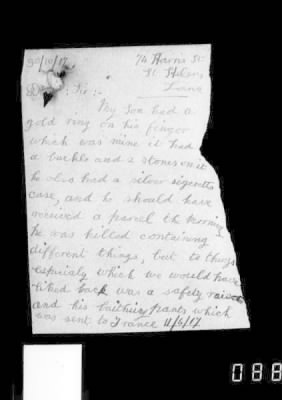 30/10/17 74 Harris St
St. Helens
Lancs
Dear Sir :-
My Son had a
gold ring on his finger
which was mine it had
a buckle and 2 stones on it
he also had a silver sigerette
case, and he should have
received a parcel the morning
he was killed containing
different things, but to things
especialy which we would have
liked back was a safety raisor
and his baithing pants which
was sent to France 11/6/17
088